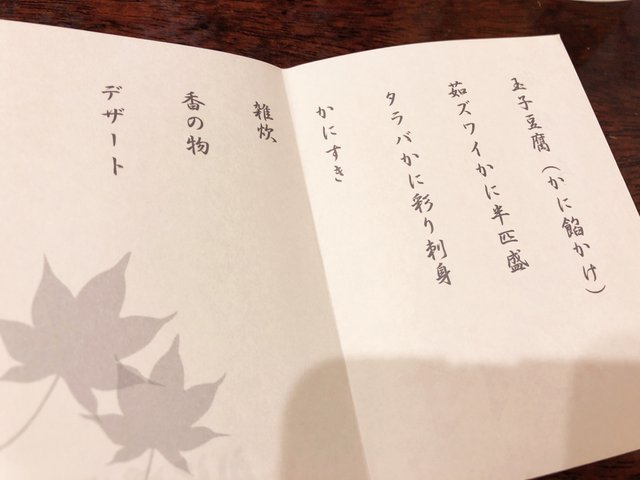 玉子豆腐(かに餡かけ)
茹ズワイかに半匹盛
タラバかに彩り刺身
かにすき
雑炊
香の物
デザート